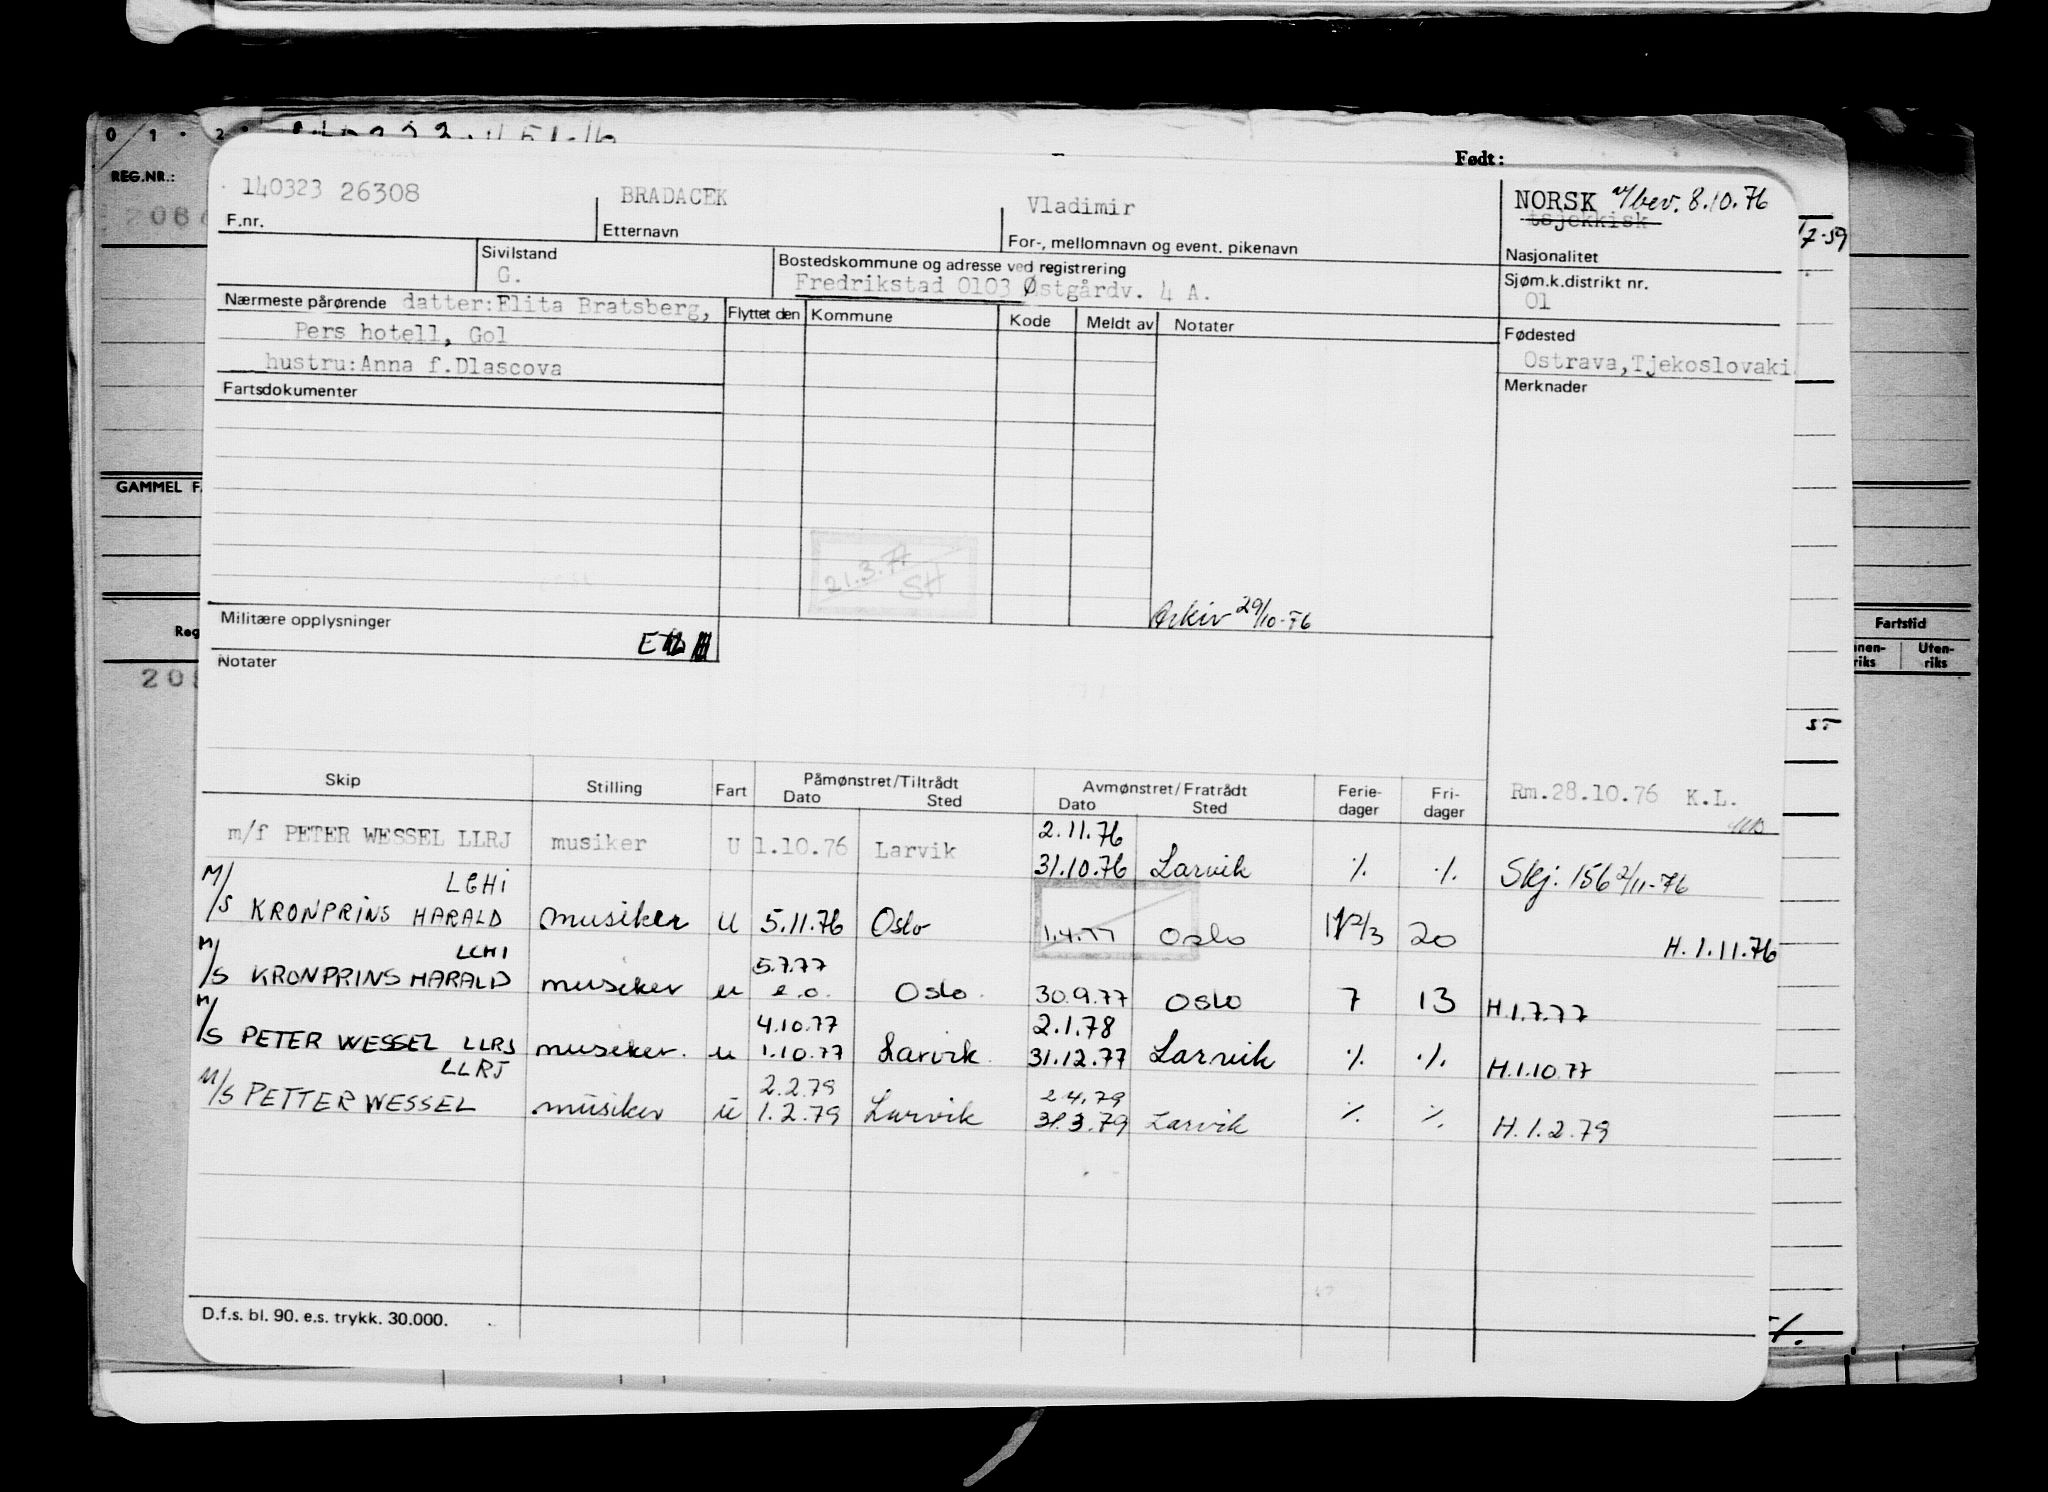 0 1 2
Født:
REG.NR.:
140323 26308
BRADACEK
Vladimir
NORSK v/bev. 8.10.76
tsjekkisk
F.nr.
Etternavn
For-, mellomnavn og event. pikenavn
Nasjonalitet
7-59
Sivilstand
G.
Bostedskommune og adresse ved registrering
Fredrikstad 0103 Østgårdv. 4 A.
Sjøm.k.distrikt nr.
01
Nærmeste pårørende datter:Elita Bratsberg,
Pers hotell, Gol
hustru:Anna f.Dlascova
Flyttet den
Kommune
Kode
Meldt av
Notater
Fødested
Ostrava,Tjekoslovaki.
Fartsdokumenter
Merknader
GAMMEL F
21.3.77
SH
Arkiv 29/10-76
Militære opplysninger
Notater
Fartstid
Uten-
riks
55
Skip
Stilling
Fart
Påmønstret/Tiltrådt
Dato
Sted
Avmønstret/Fratrådt
Dato
Sted
Ferie-
dager
Fri-
dager
Rm.28.10.76 K.L.
m/f PETER WESSEL LLRJ musiker U 1.10.76 Larvik 2.11.76 31.10.76 Larvik ./. ./. Skj. 156 2/11-76
M/S KRONPRINS HARALD LCHI musiker U 5.11.76 Oslo 1.4.77 Oslo 20 H.1.11.76
M/S KRONPRINS HARALD LCHI musiker u 5.7.77 e.o. Oslo 30.9.77 Oslo 7 13 H.1.7.77
M/S PETER WESSEL LLRJ musiker. u 4.10.77 1.10.77 Larvik. 2.1.78 31.12.77 Larvik ./. ./. H.1.10.77
M/S PETTER WESSEL LLRJ musiker u 2.2.79 1.2.79 Larvik 2.4.79 31.3.79 Larvik ./. ./. H.1.2.79
D.f.s. bl. 90. e.s. trykk. 30.000.